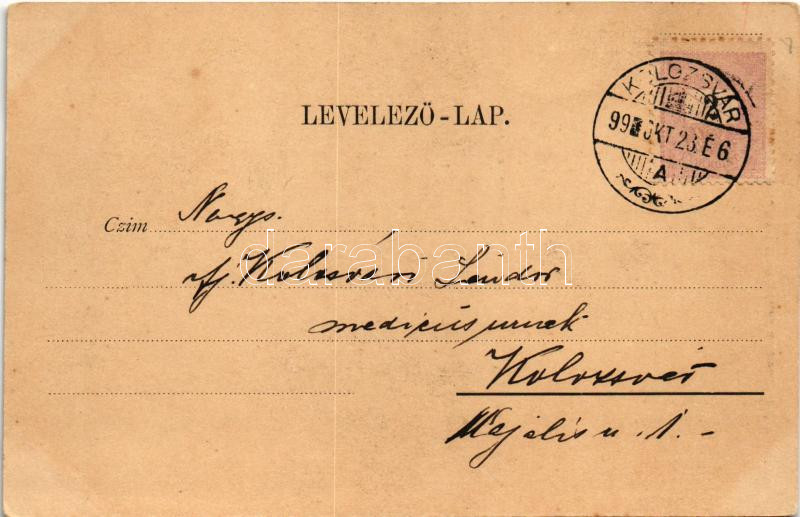 LEVELEZŐ-LAP.
KOLOZSVÁR
99 OKT. 23. É 6
A
Czim Nagys.
ifj. Kolosvári Sándor
medicus urnak
Kolozsvár
Majális u. 1.-
darabanth